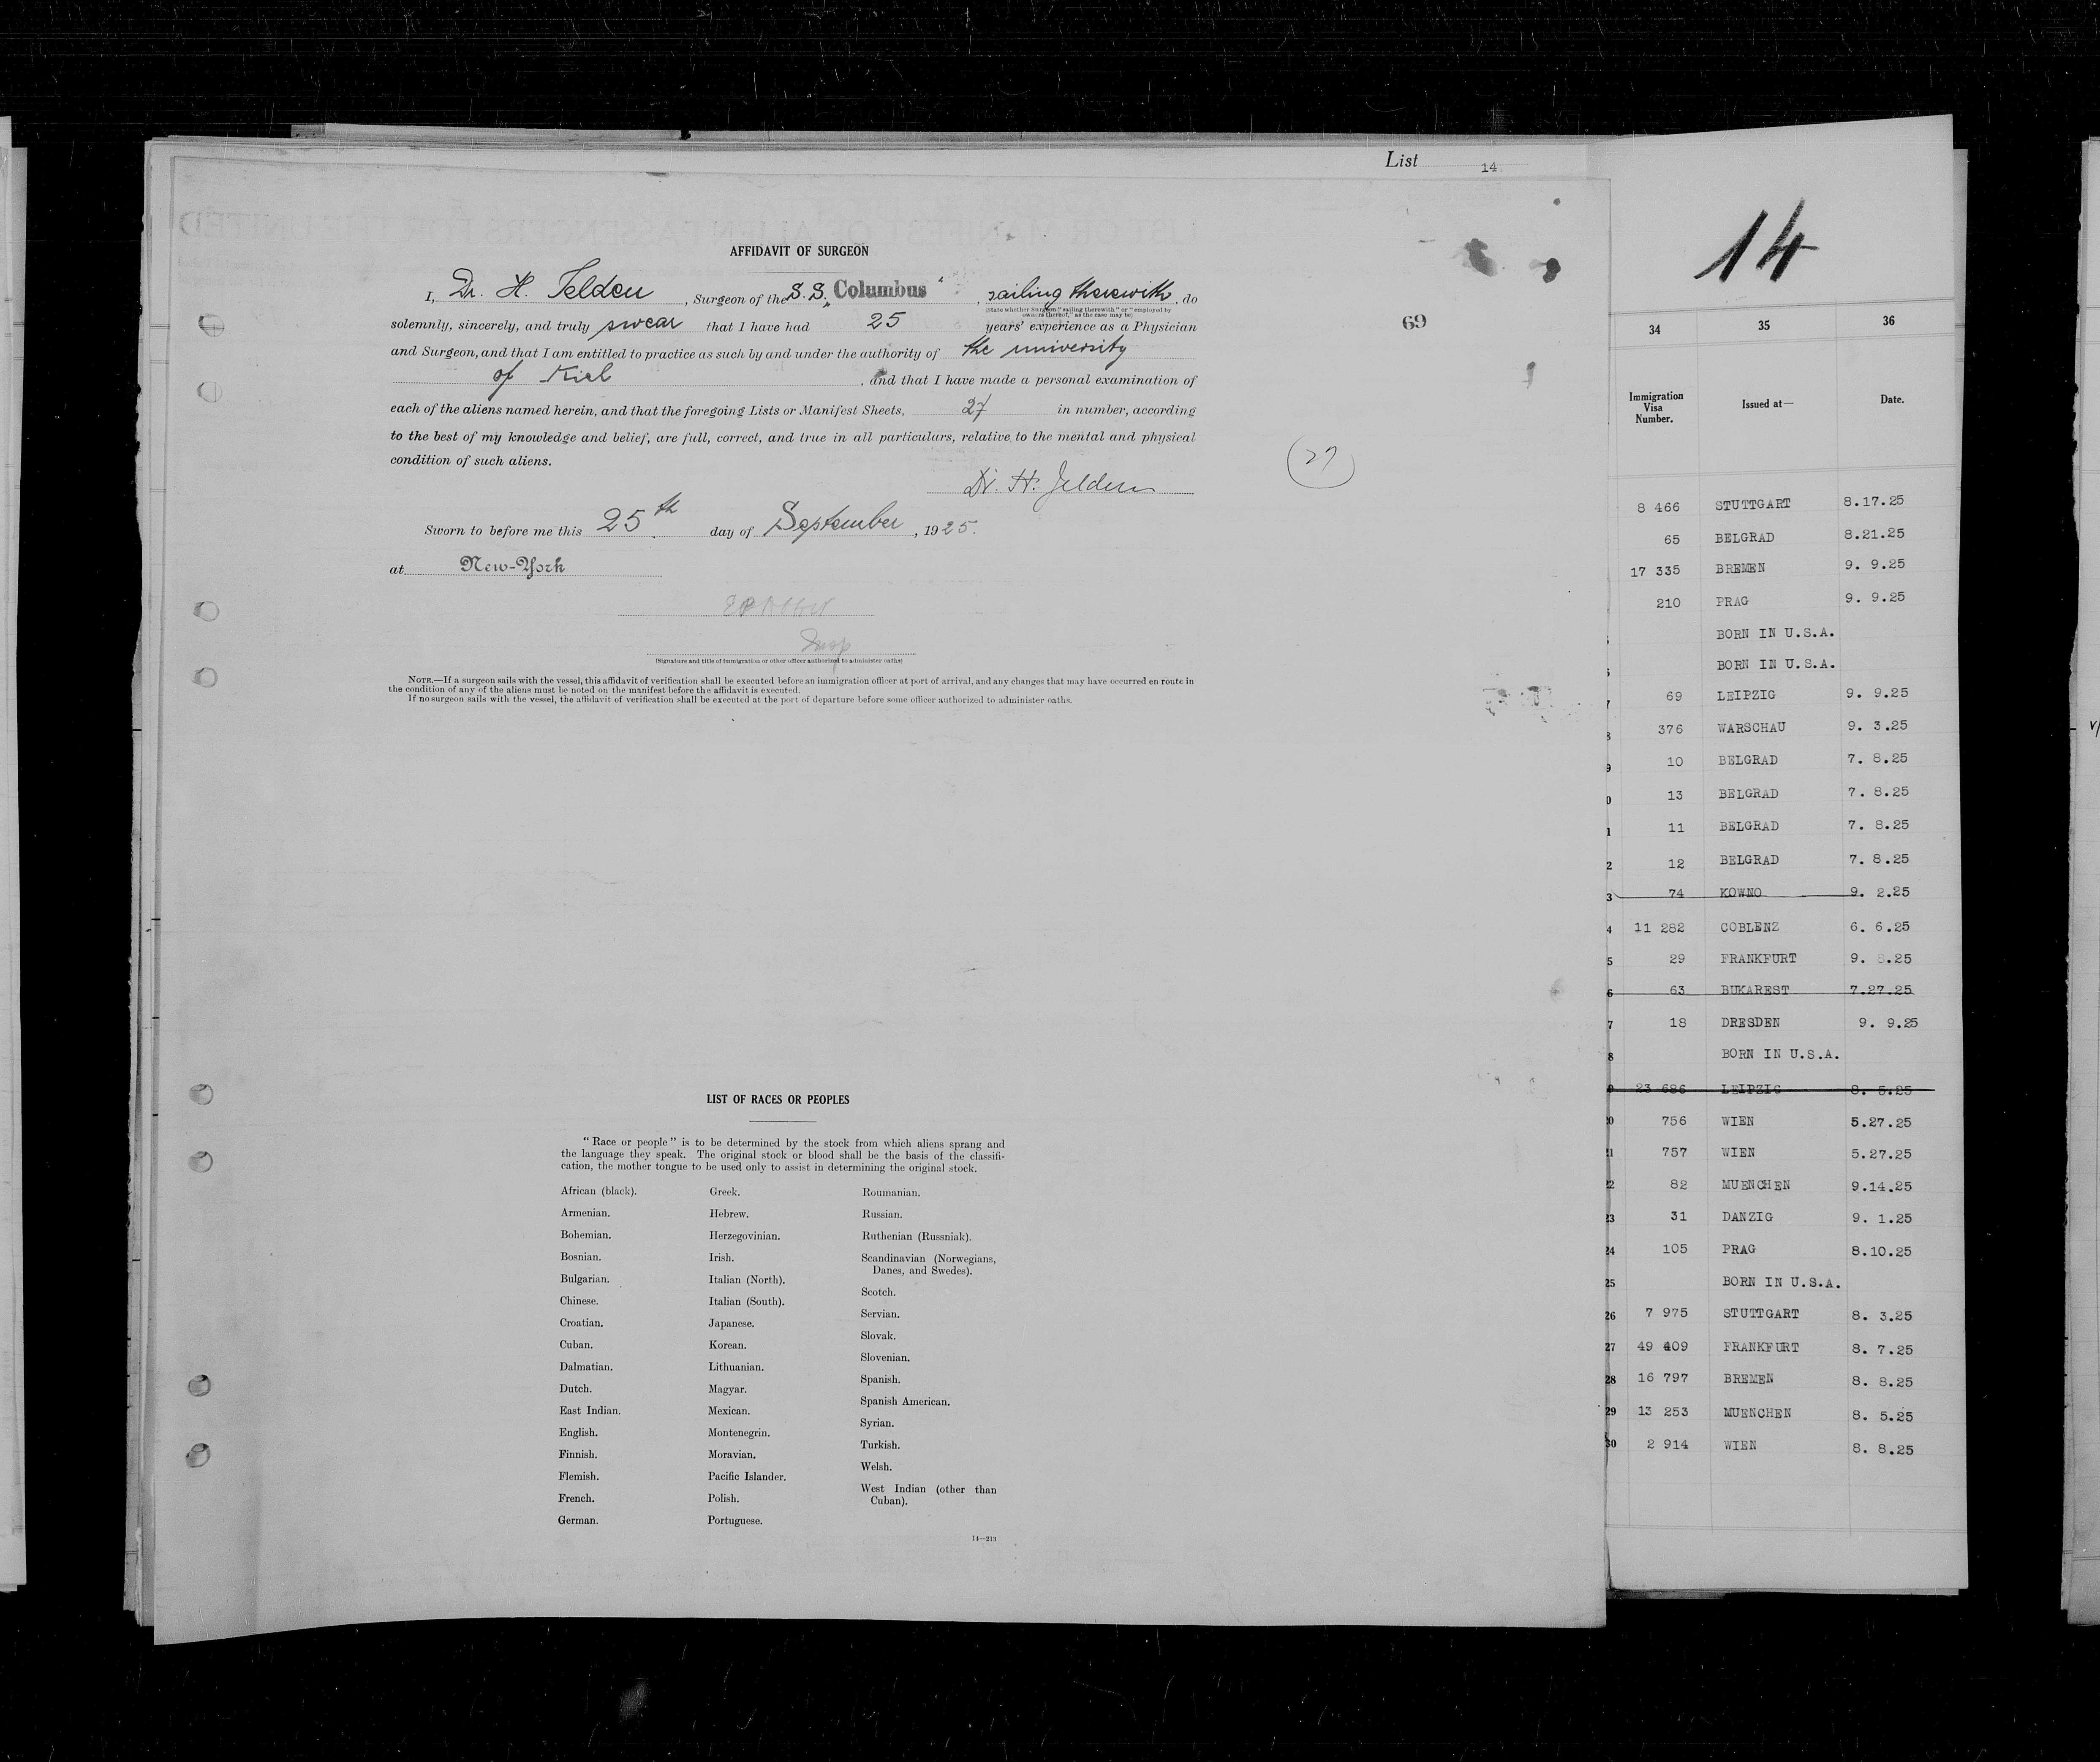 List 14
AFFIDAVIT OF SURGEON
I, Dr. H. Jelden, Surgeon of the S.S. „Columbus“, sailing therewith, do
(State whether Surgeon "sailing therewith" or "employed by
owners thereof," as the case may be)
solemnly, sincerely, and truly swear that I have had 25 years' experience as a Physician
and Surgeon, and that I am entitled to practice as such by and under the authority of the university
of Kiel, and that I have made a personal examination of
each of the aliens named herein, and that the foregoing Lists or Manifest Sheets, 27 in number, according
to the best of my knowledge and belief, are full, correct, and true in all particulars, relative to the mental and physical
condition of such aliens.
Dr. H. Jelden
Sworn to before me this 25th day of September, 1925.
at New-York
Insp
(Signature and title of immigration or other officer authorized to administer oaths)
NOTE.—If a surgeon sails with the vessel, this affidavit of verification shall be executed before an immigration officer at port of arrival, and any changes that may have occurred en route in
the condition of any of the aliens must be noted on the manifest before the affidavit is executed.
If no surgeon sails with the vessel, the affidavit of verification shall be executed at the port of departure before some officer authorized to administer oaths.
69
(27)
LIST OF RACES OR PEOPLES
"Race or people" is to be determined by the stock from which aliens sprang and
the language they speak. The original stock or blood shall be the basis of the classifi-
cation, the mother tongue to be used only to assist in determining the original stock.
African (black).
Armenian.
Bohemian.
Bosnian.
Bulgarian.
Chinese.
Croatian.
Cuban.
Dalmatian.
Dutch.
East Indian.
English.
Finnish.
Flemish.
French.
German.
Greek.
Hebrew.
Herzegovinian.
Irish.
Italian (North).
Italian (South).
Japanese.
Korean.
Lithuanian.
Magyar.
Mexican.
Montenegrin.
Moravian.
Pacific Islander.
Polish.
Portuguese.
Roumanian.
Russian.
Ruthenian (Russniak).
Scandinavian (Norwegians,
Danes, and Swedes).
Scotch.
Servian.
Slovak.
Slovenian.
Spanish.
Spanish American.
Syrian.
Turkish.
Welsh.
West Indian (other than
Cuban).
14—213
14
34 35 36
Immigration
Visa
Number.
Issued at—
Date.
8 466 STUTTGART 8.17.25
65 BELGRAD 8.21.25
17 335 BREMEN 9. 9.25
210 PRAG 9. 9.25
BORN IN U.S.A.
BORN IN U.S.A.
7 69 LEIPZIG 9. 9.25
8 376 WARSCHAU 9. 3.25
9 10 BELGRAD 7. 8.25
0 13 BELGRAD 7. 8.25
1 11 BELGRAD 7. 8.25
2 12 BELGRAD 7. 8.25
3 74 KOWNO 9. 2.25
4 11 282 COBLENZ 6. 6.25
5 29 FRANKFURT 9. 8.25
6 63 BUKAREST 7.27.25
7 18 DRESDEN 9. 9.25
8 BORN IN U.S.A.
9 23 686 LEIPZIG 8. 5.25
20 756 WIEN 5.27.25
21 757 WIEN 5.27.25
22 82 MUENCHEN 9.14.25
23 31 DANZIG 9. 1.25
24 105 PRAG 8.10.25
25 BORN IN U.S.A.
26 7 975 STUTTGART 8. 3.25
27 49 409 FRANKFURT 8. 7.25
28 16 797 BREMEN 8. 8.25
29 13 253 MUENCHEN 8. 5.25
30 2 914 WIEN 8. 8.25